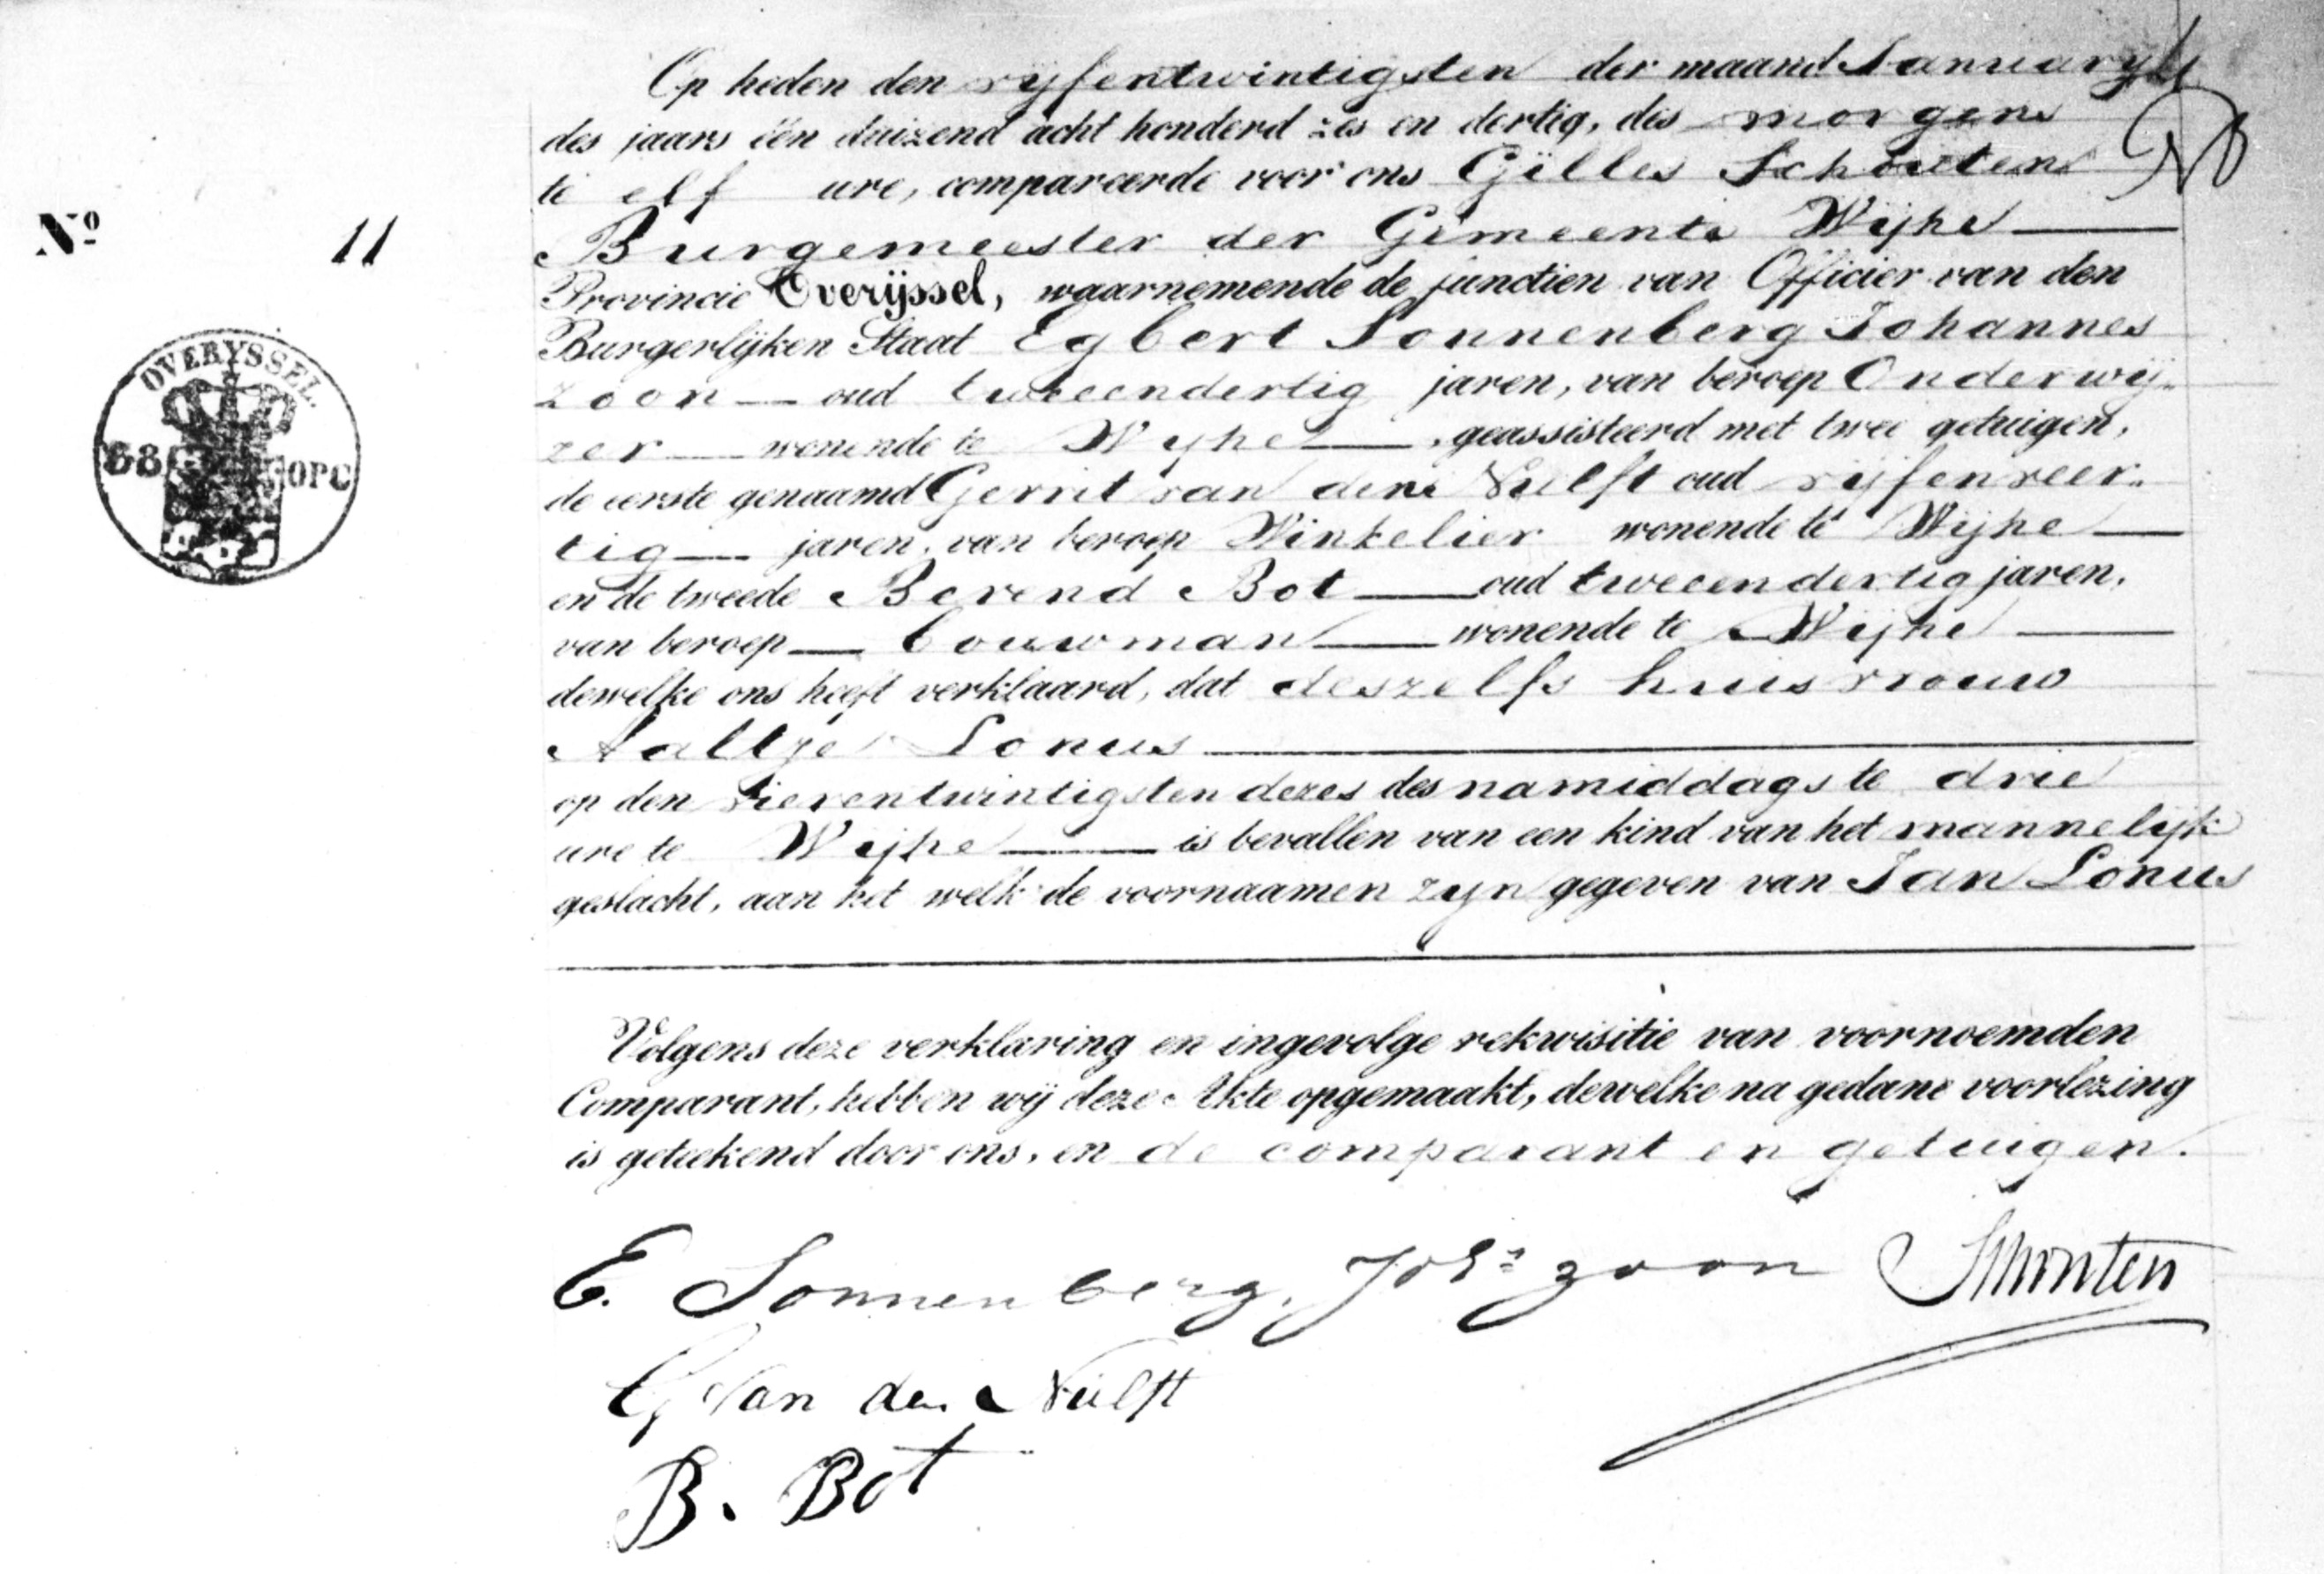 Op heden den vyfentwintigsten der maand January
des jaars één duizend acht honderd zes en dertig, des morgens
te elf ure, compareerde voor ons Gilles Schouten
Nº 11
Burgemeester der Gemeente Wijhe
Provincie Overijssel, waarnemende de functien van Officier van den
Burgerlijken Staat Egbert Sonnenberg Johannes
OVERYSSEL.
zoon oud tweeendertig jaren, van beroep Onderwij-
zer wonende te Wijhe, geassisteerd met twee getuigen,
38 OPC
de eerste genaamd Gerrit van den Nulft oud vijfenveer-
tig jaren, van beroep Winkelier wonende te Wijhe
en de tweede Berend Bot oud tweeendertig jaren,
van beroep bouwman wonende te Wijhe
dewelke ons heeft verklaard, dat deszelfs huisvrouw
Aaltje Lonus
op den vierentwintigsten dezes des namiddags te drie
ure te Wijhe is bevallen van een kind van het mannelijk
geslacht, aan het welk de voornaamen zijn gegeven van Jan Lonus
Volgens deze verklaring en ingevolge rekwisitie van voornoemden
Comparant, hebben wij deze Akte opgemaakt, dewelke na gedane voorlezing
is geteekend door ons, en de comparant en getuigen.
E. Sonnenberg, Johs zoon Schouten
G Van den Nulft
B. Bot